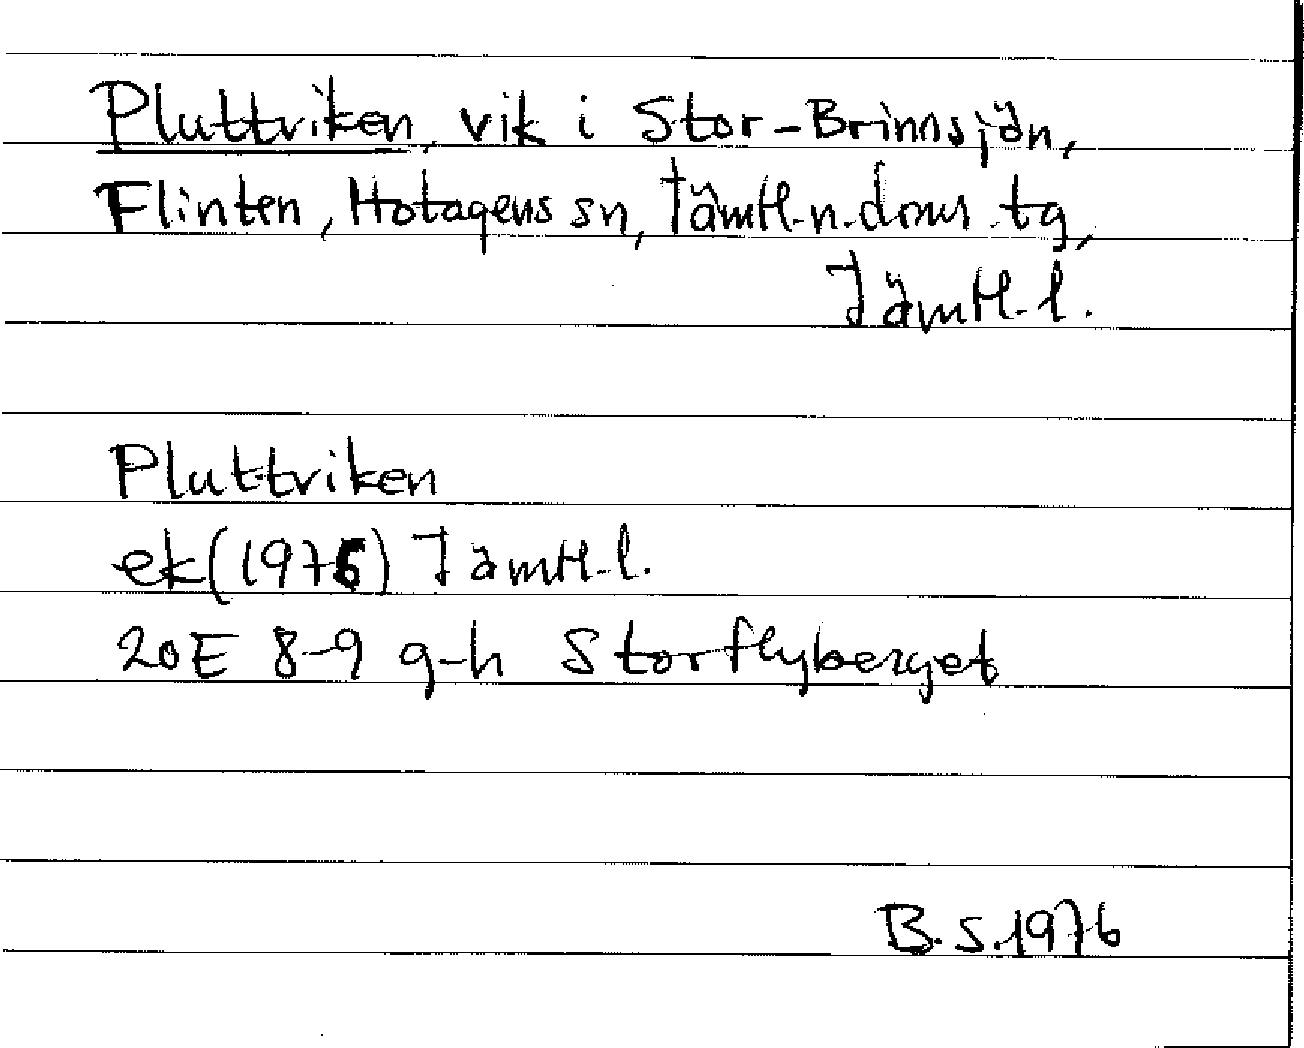 Pluttviken, vik i Stor-Brinnsjön,
Flinten, Hotagens sn, Jämtl.n.doms tg,
Jämtl. l.
Pluttviken
ek (1976) Jämtl. l.
20E 8-9 g-h Storflyberget
B.S. 1976